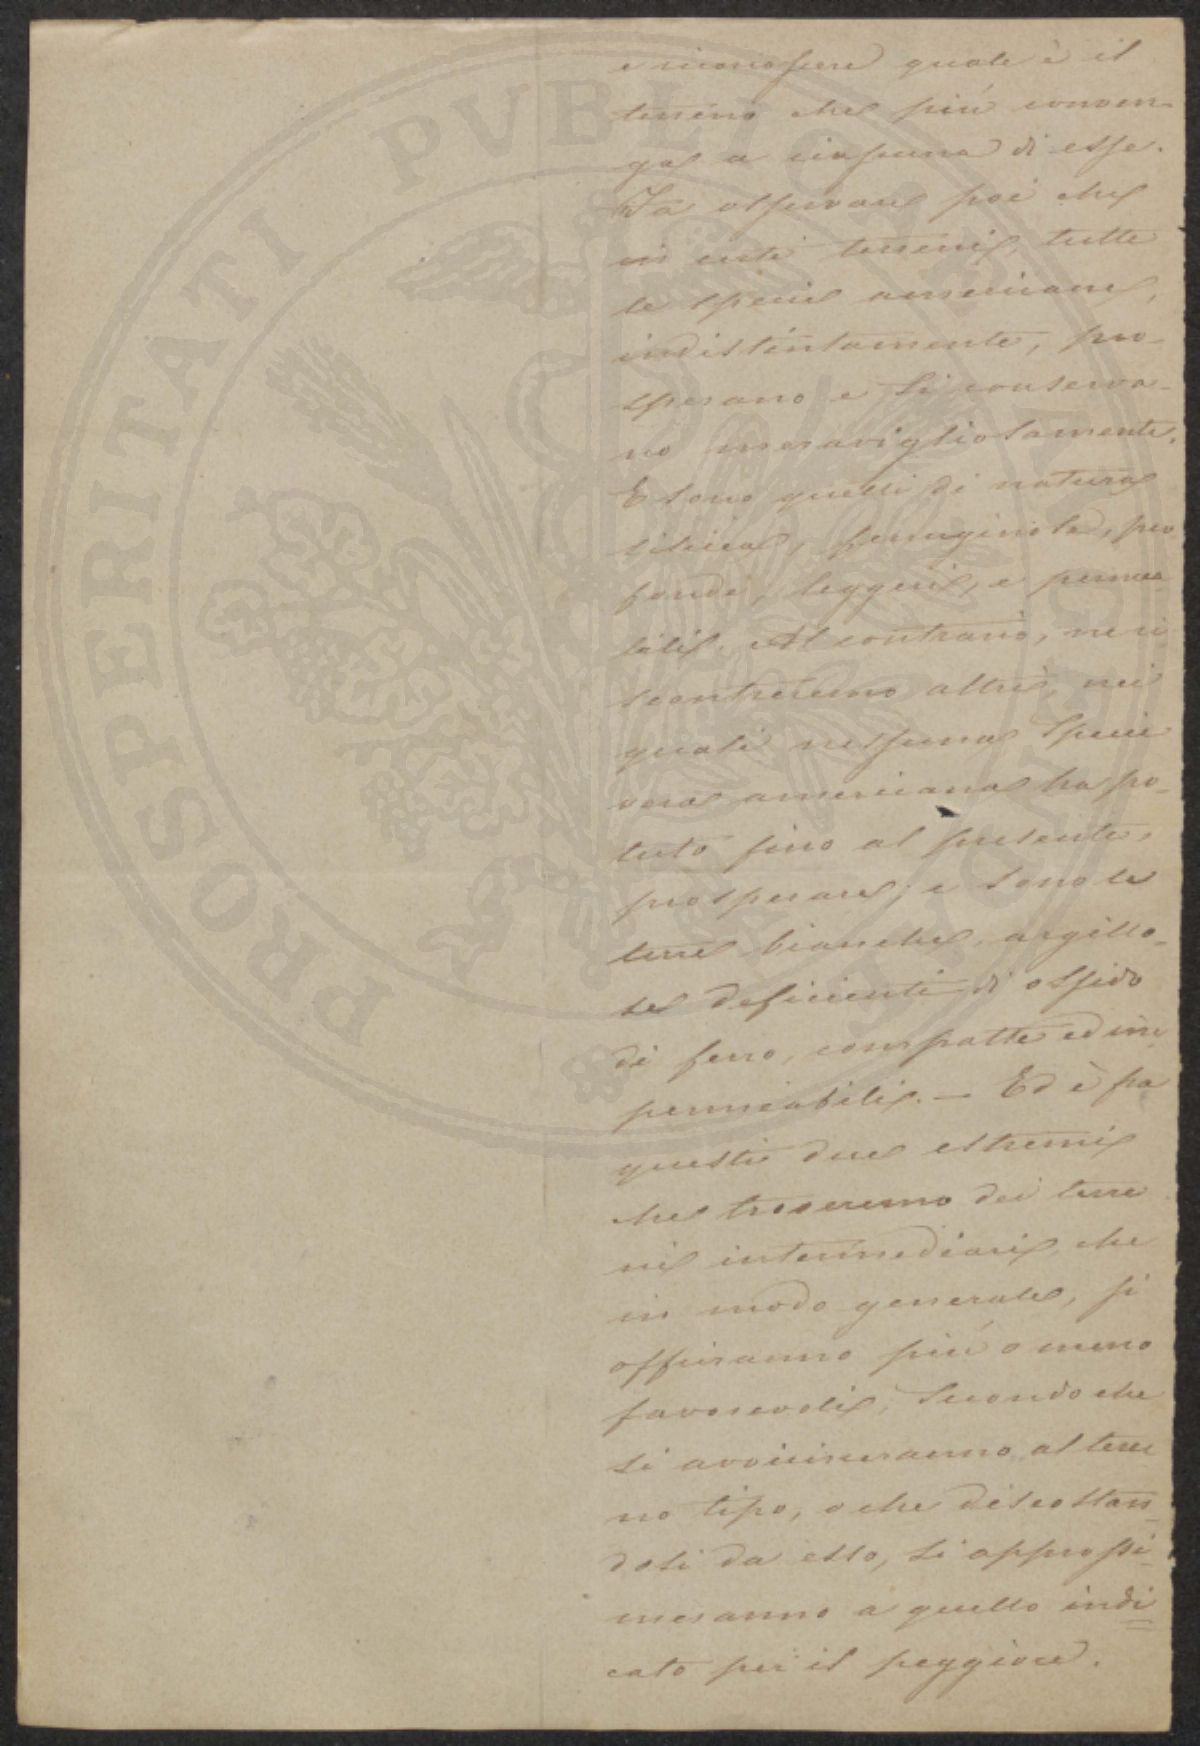 e riconoscere quale è il
terreno che più conven-
ga a ciascuna di esse.
Fa osservare poi che
in certi terreni, tutte
le specie americane,
indistintamente, pro-
sperano e si conserva-
no meravigliosamente.
E sono quelli di natura
silicea, ferruginosa, pro
fondi, leggeri, e permea
bili. Al contrario, ne ri
scontreremo altri, nei
quali nessuna specie
vera americana ha po-
tuto fino al presente,
prosperare; e sono le
terre bianche, argillo-
se deficienti di ossido
di ferro, compatte ed im
permeabili. — Ed è fra
questi due estremi
che troveremo dei terre
ni intermediari, che
in modo generale, si
offriranno più o meno
favorevoli, secondo che
si avvicineranno al terre
no tipo, o che discostan
dosi da esso, si approssi-
meranno a quello indi
cato per il peggiore.
PROSPERITATI PVBLICAE